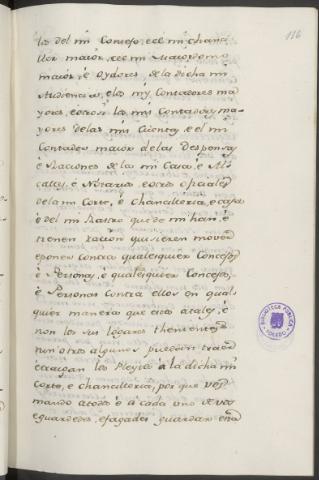 116
los del mi Consejo, e el mi chanci
ller maior, e el mi Maiordomo
maior, é Oydores, de la dicha mi
Audiencia, e los my Contadores ma
yores, e otrosi los mis Contadores ma-
yores de las mis Cuentas, e el mi
Contador maior de las Despensas
é Raciones de la mi Casa, é Al
caldes, é Notarios, e otros oficiales
de la mi Corte, é Chancilleria, e casa
é del mi Rastro que de mi han, é
tienen racion quisieren mover
e poner contra qualesquier Concejos
é Personas, é qualesquier Concejos,
é Personas contra ellos en qual
quier manera que estos atales, é
non los sus lugares thenientes
nin otros algunos puedan traer
e traigan los Pleytos á la dicha mi
Corte, é chancilleria, por que vos
mando a todos é á cada uno de vos
e guardedes, e fagades guardar en
BIBLIOTECA PUBLICA
TOLEDO